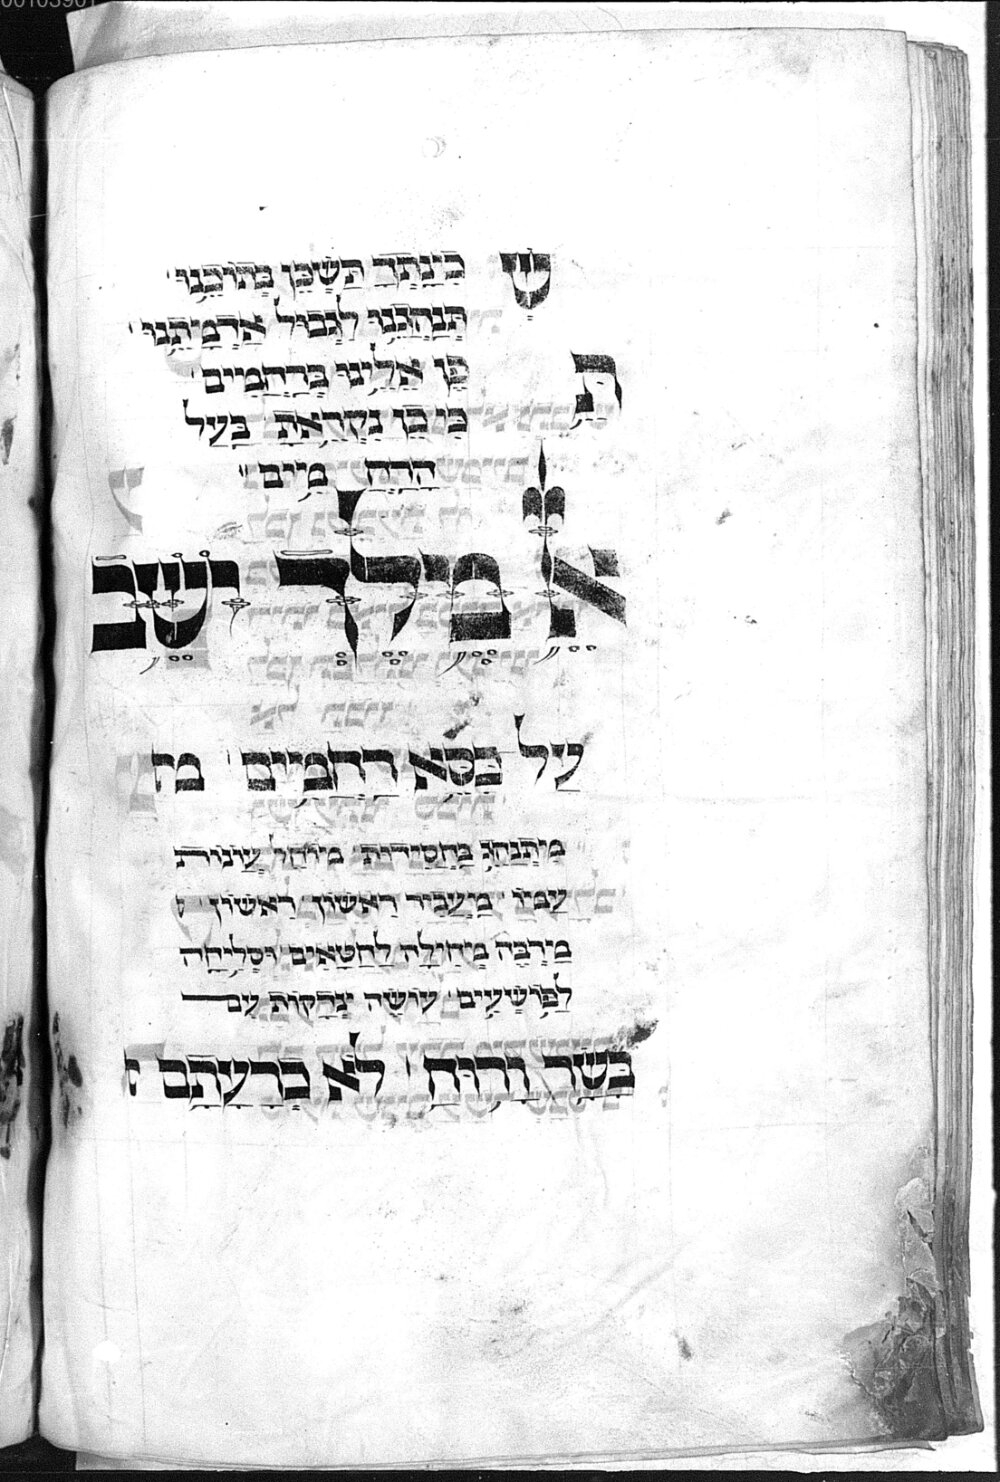 שָׁ כִינָתָךָ תַּשְׁכֵּן בְּתוֹכֵנוּ
תְּנַהֲגֵנוּ לִגְבוּל אַדְמָתֵנוּ
תֵּ פֶן אֵלֵינוּ בְּרַחֲמִים
כִּי כֵן נִקְרֵאתָ בַּעַל
הָרַחֲמִים
אֵל מֶלֶךְ יֹשֵׁב
עַל כִּסֵּא רַחֲמִים מת
מִתְנַהֵג בַּחֲסִידוּת מוֹחֵל עֲוֹנוֹת
עַמּוֹ מַעֲבִיר רִאשׁוֹן רִאשׁוֹן
מַרְבֶּה מְחִילָה לְחַטָּאִים וּסְלִיחָה
לְפוֹשְׁעִים עוֹשֶׂה צְדָקוֹת עִם
בָּשָׂר וְרוּחַ לֹא כְרָעָתָם